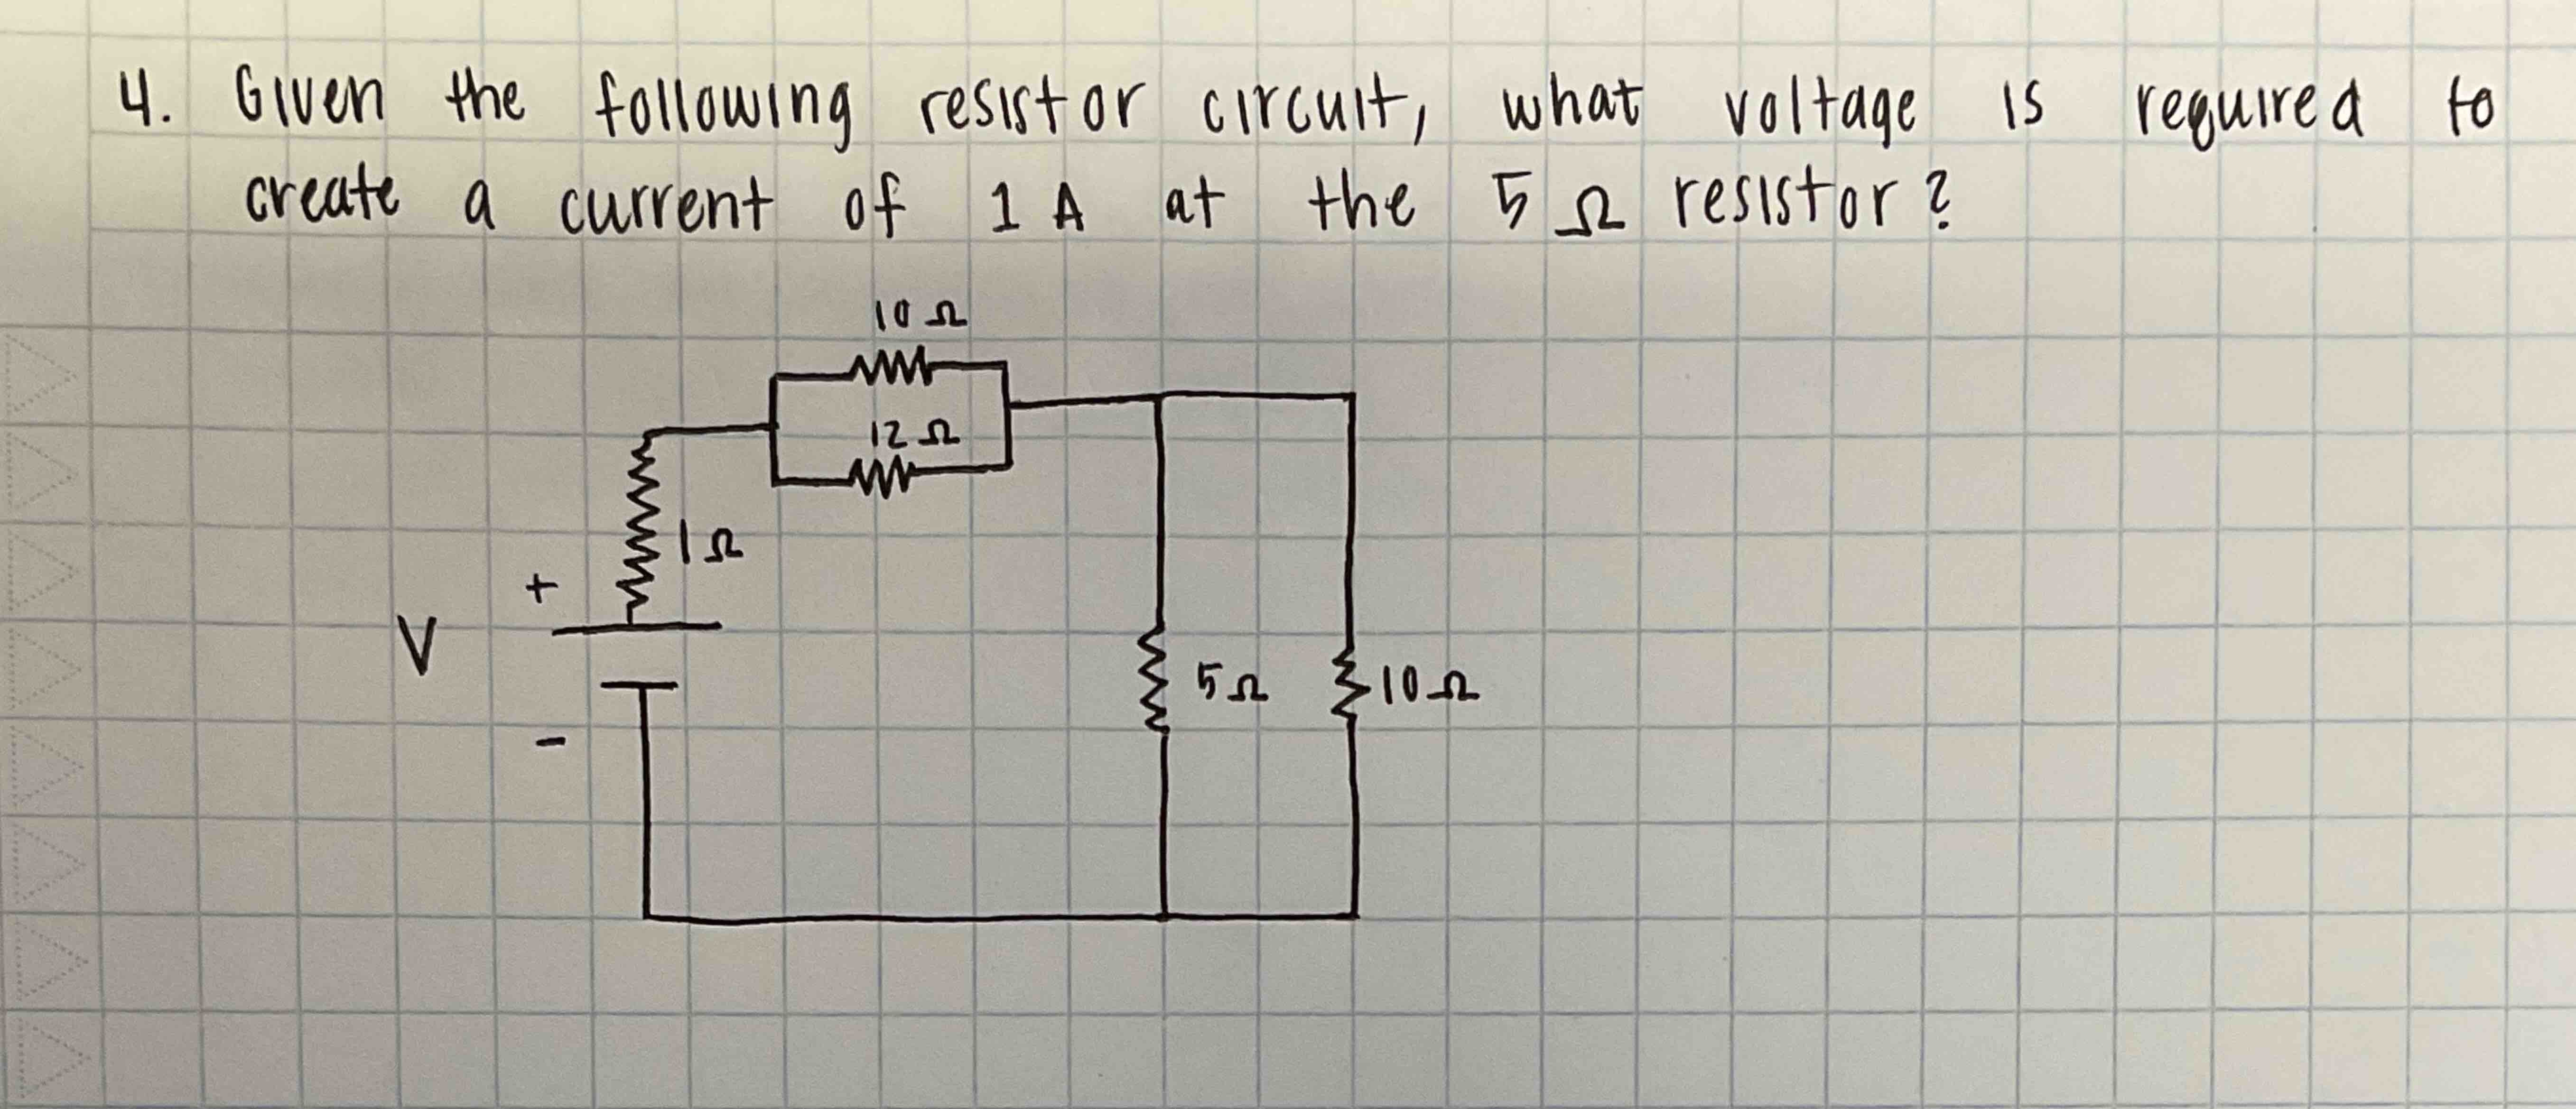 4. Given the following resistor circuit, what voltage is required to
create a current of 1 A at the 5 Ω resistor?
10 Ω
12 Ω
1 Ω
+
V
5 Ω
10 Ω
-